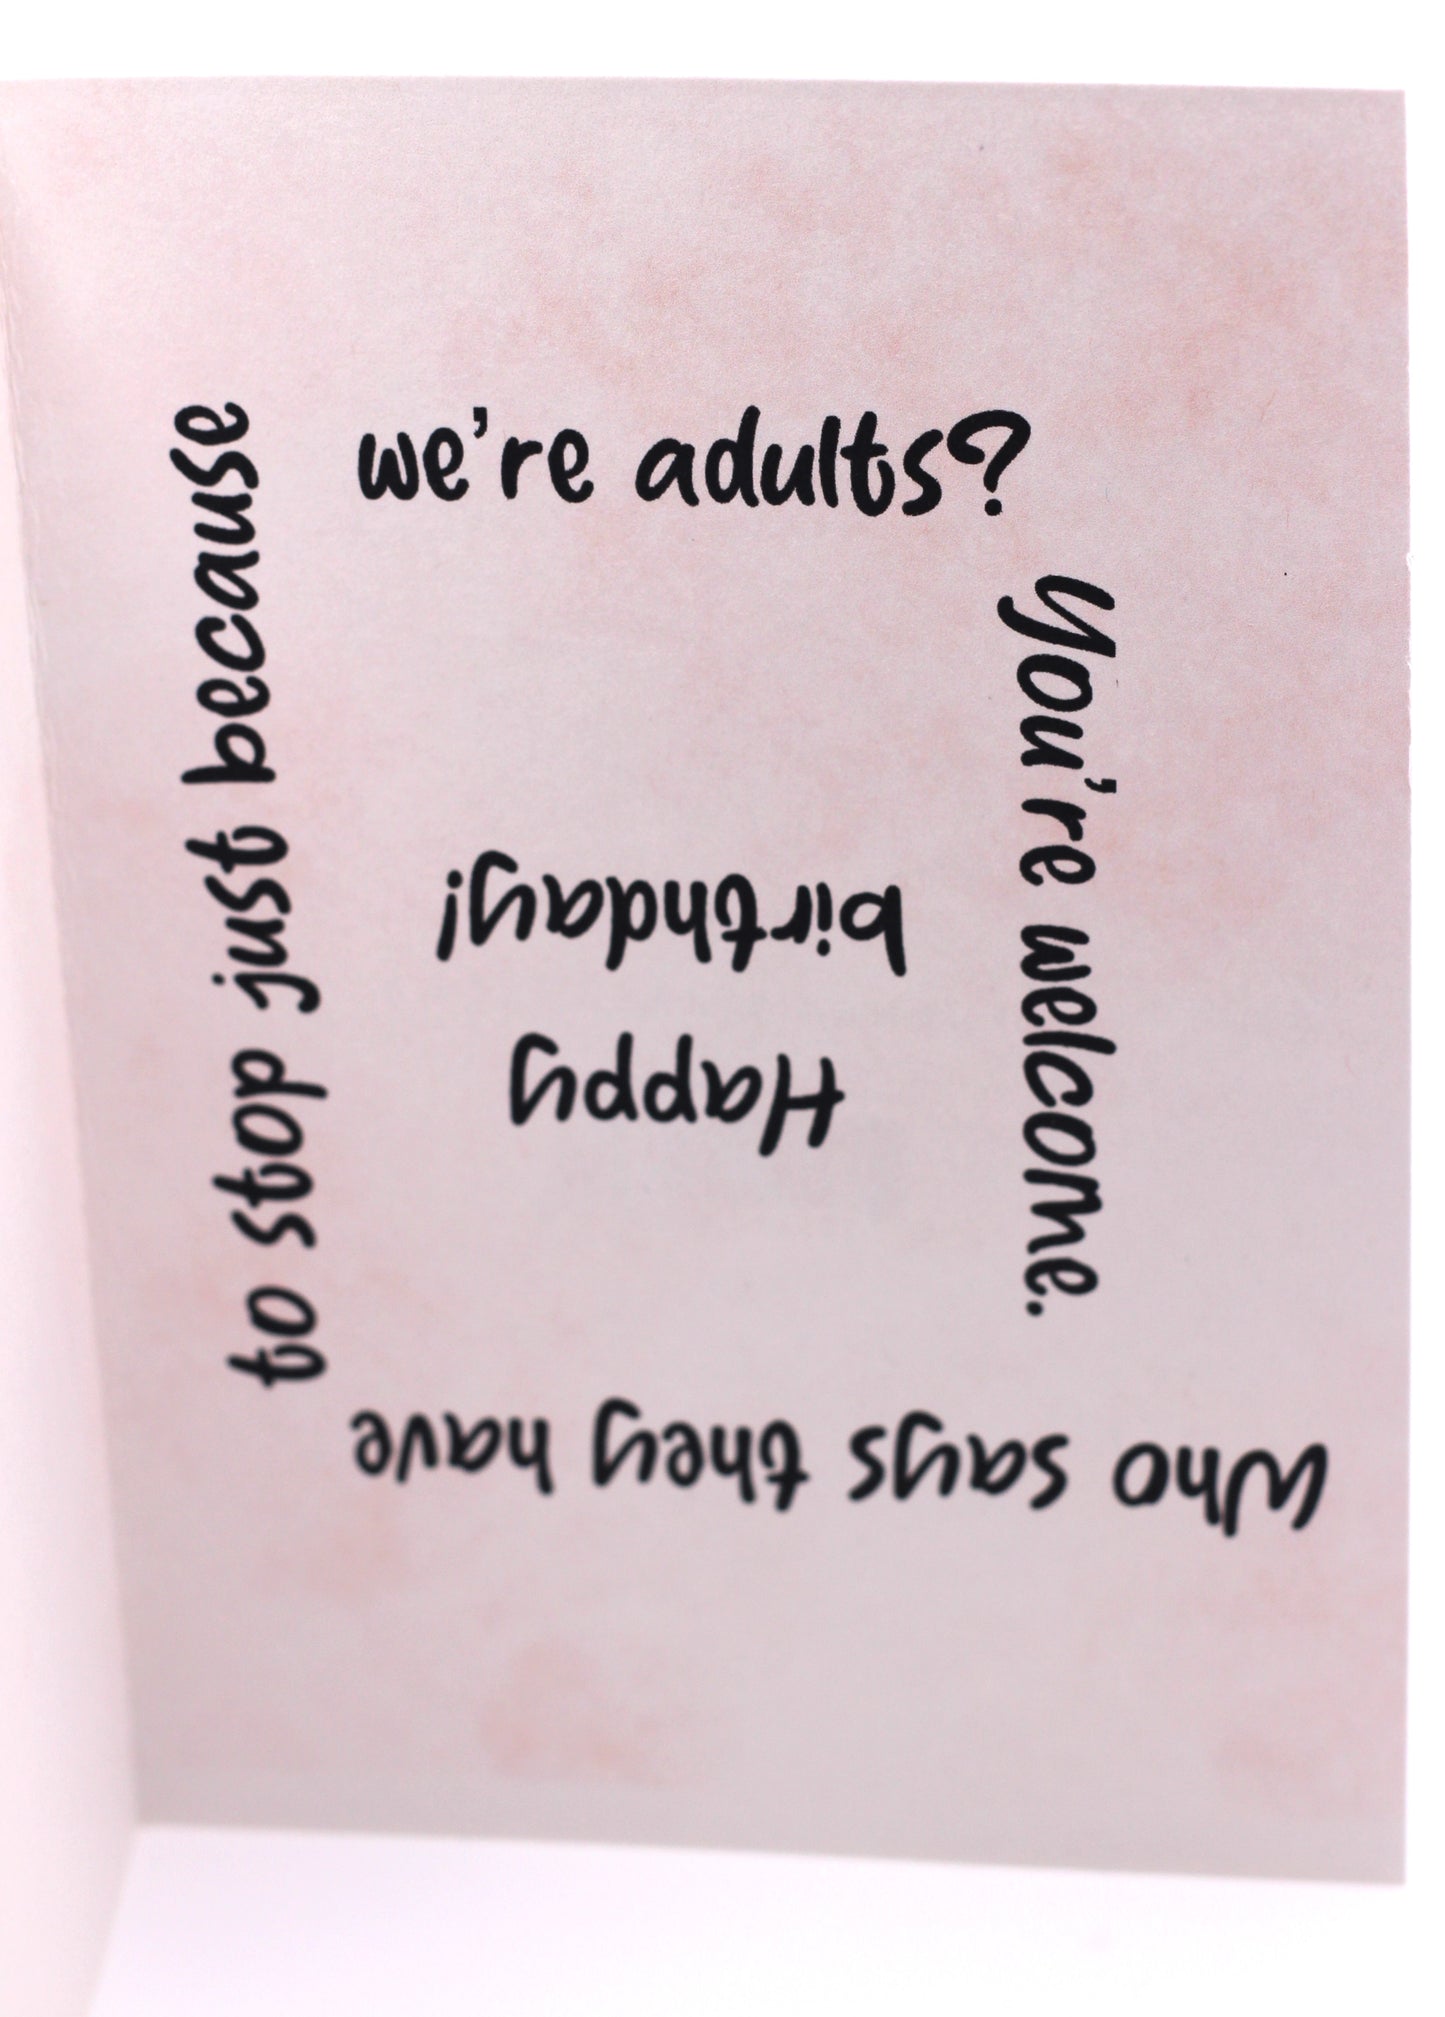 Who says they have
to stop just because
we're adults?
You're welcome.
Happy
birthday!